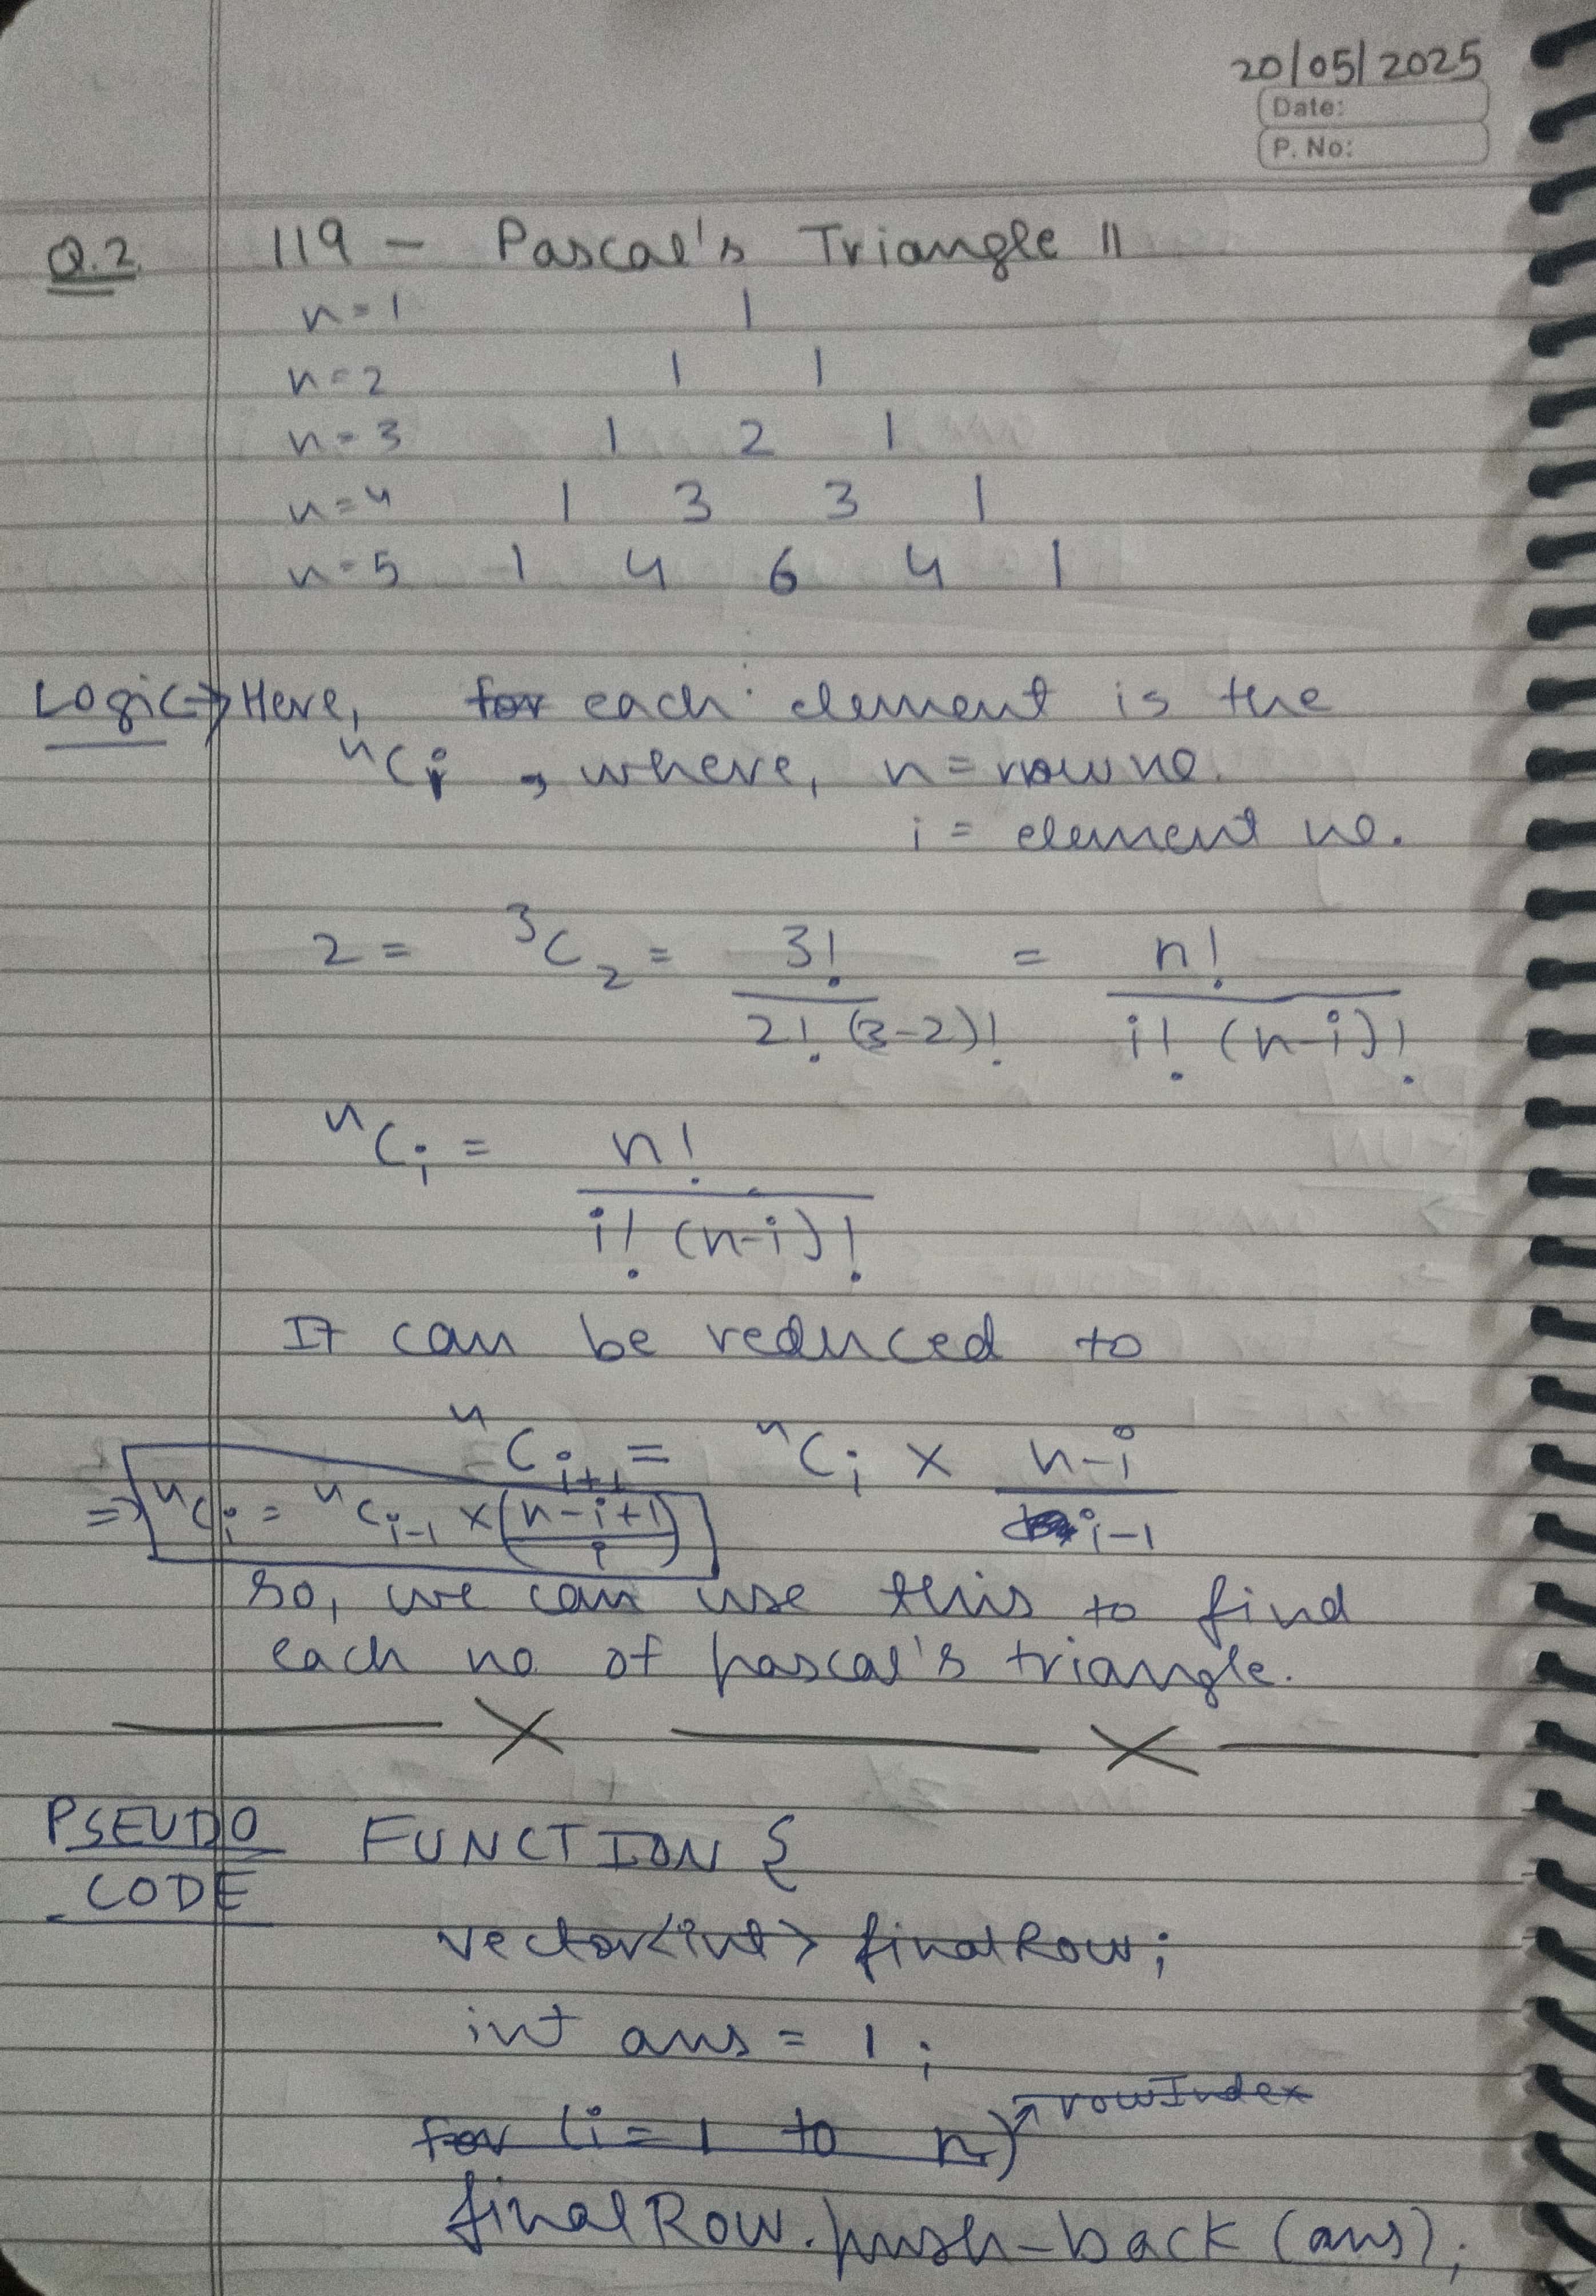 20/05/2025
Date:
P. No:
Q.2 119 - Pascal's Triangle II
n=1 1
n=2 1 1
n=3 1 2 1
n=4 1 3 3 1
n=5 1 4 6 4 1
Logic → Here, for each element is the
ⁿCᵢ , where, n = row no.
i = element no.
2 = ³C₂ = 3! / 2! (3-2)! = n! / i! (n-i)!
ⁿCᵢ = n! / i! (n-i)!
It can be reduced to
ⁿCᵢ₊₁ = ⁿCᵢ × n-i / i-1
⇒ ⁿCᵢ = ⁿCᵢ₋₁ × (n-i+1 / i)
so, we can use this to find
each no of pascal's triangle.
X X
PSEUDO CODE
FUNCTION {
vector<int> finalRow;
int ans = 1 ;
for (i = 1 to n) → rowIndex
finalRow.push-back (ans);